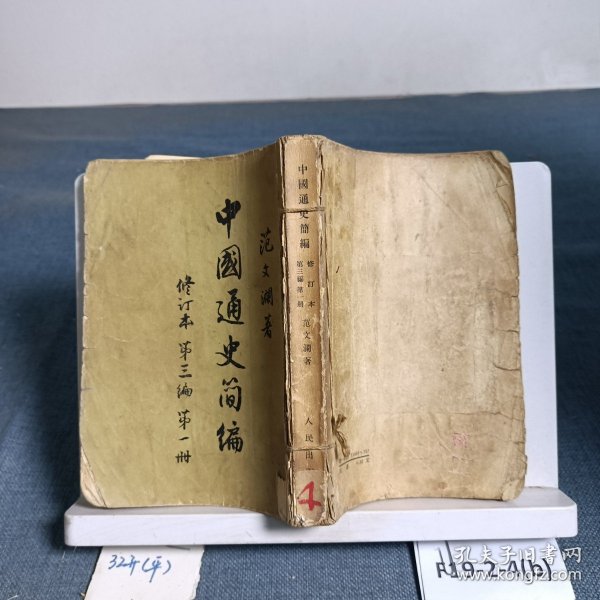 范文瀾著
中國通史简编
修订本 第三编 第一册
中國通史簡編
修訂本
第三編第一册
范文瀾著
人民出
4
32开(平)
R19-2-4(b)
孔夫子旧书网
www.kongfz.com